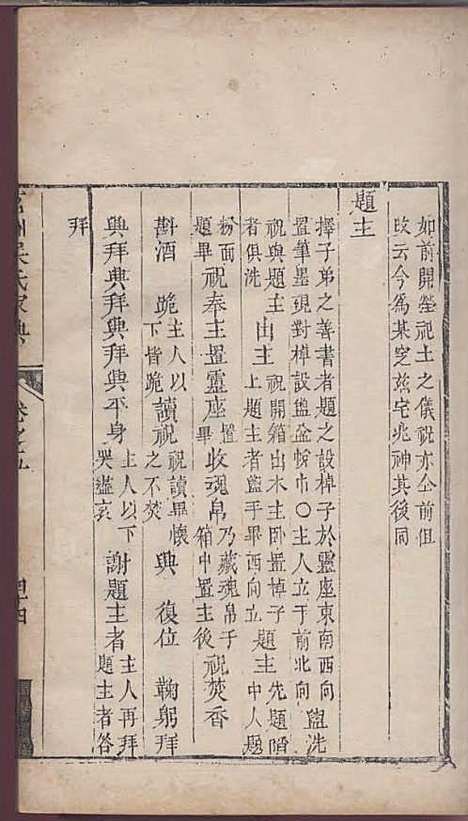 如前開塋祀土之儀祝亦仝前但
改云今為某窆茲宅兆神其後同
題主
擇子弟之善書者題之設棹子於靈座東南西向
置筆墨現對棹設盥盆帨巾○主人立于前北向 盥洗
祝與題主者俱洗 出主 祝開箱出木主臥置棹子上題主者盥手畢西向立 題主 先題陷中人題
粉面題畢 祝奉主置靈座 置畢 收魂帛 乃藏魂帛子箱中置主後 祝焚香
斟酒 跪 主人以下皆跪 讀祝 祝讀畢懷之不焚 興 復位 鞠躬拜
興拜興拜興拜興平身 主人以下哭盡哀 謝題主者 主人再拜題主者答
拜
洲吳氏家典 卷之五